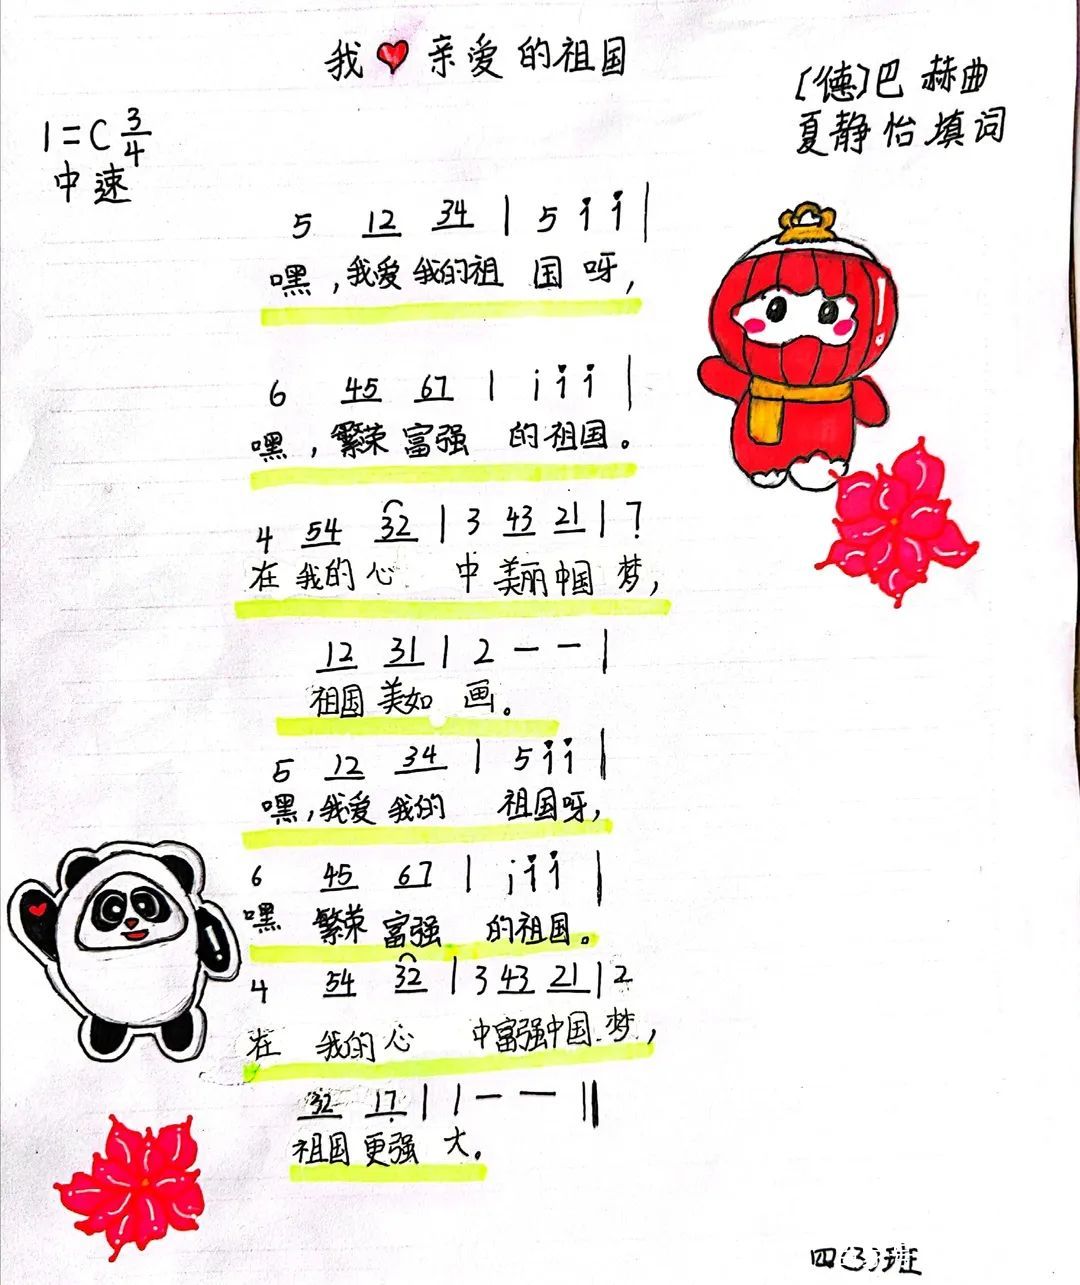 我❤亲爱的祖国
[德]巴赫曲
夏静怡填词
1=C 3/4
中速
5 12 34 | 5 i i |
嘿,我爱我的祖国呀,
6 45 67 | i i i |
嘿,繁荣富强的祖国。
4 54 32 | 3 43 21 | 7
在我的心中美丽中国梦,
12 31 | 2 — — |
祖国美如画。
5 12 34 | 5 i i |
嘿,我爱我的祖国呀,
6 45 67 | i i i |
嘿 繁荣富强的祖国。
4 54 32 | 3 43 21 | 2
在我的心中富强中国梦,
32 17 | 1 — — ‖
祖国更强大。
四 班